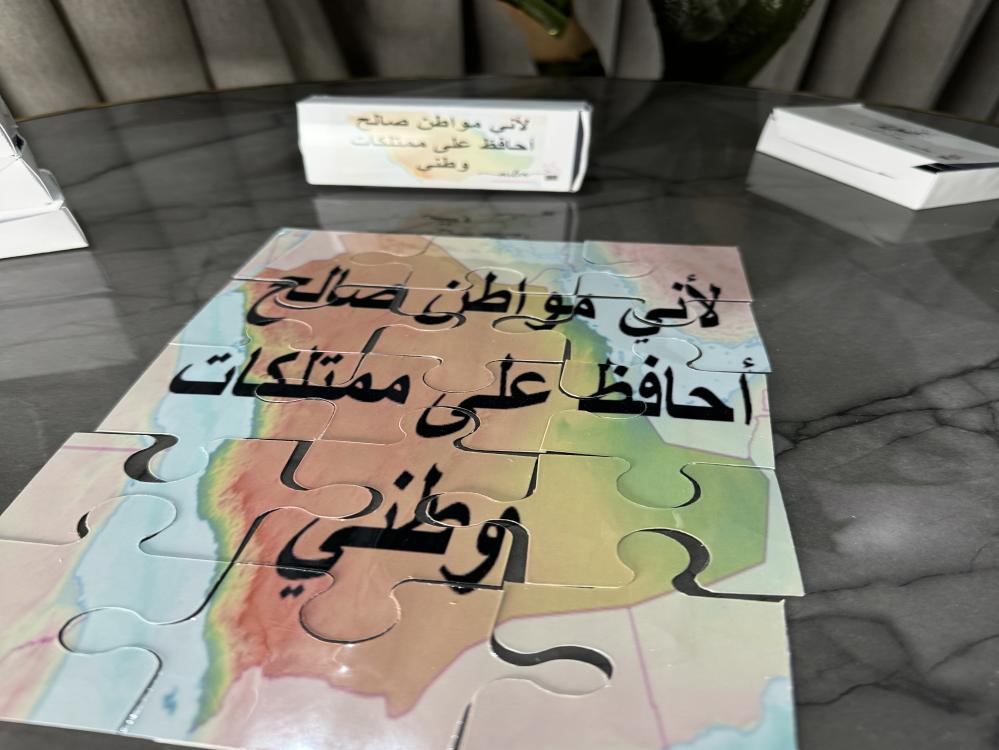 لأني مواطن صالح
أحافظ على ممتلكات
وطني
لأني مواطن صالح
أحافظ على ممتلكات
وطني